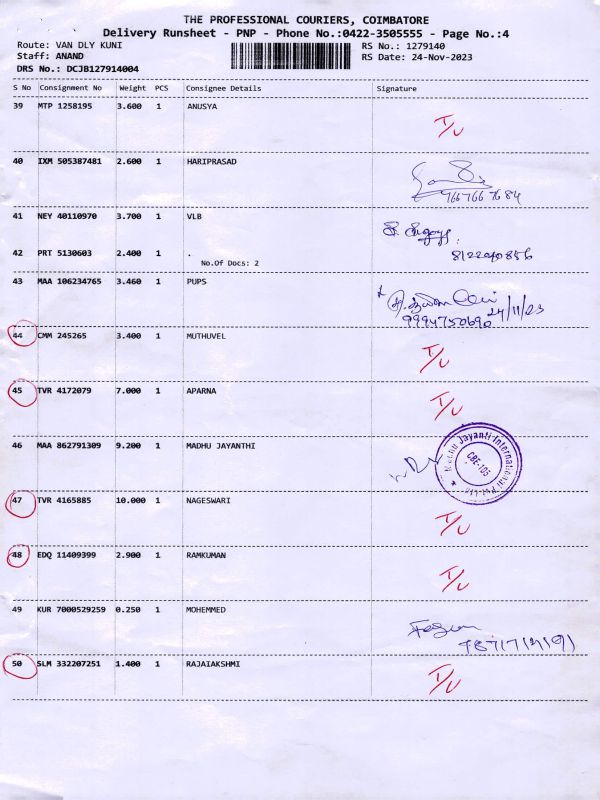 THE PROFESSIONAL COURIERS, COIMBATORE
Delivery Runsheet - PNP - Phone No.:0422-3505555 - Page No.:4
Route: VAN DLY KUNI
RS No.: 1279140
Staff: ANAND
RS Date: 24-Nov-2023
DRS No.: DCJB127914004
S No Consignment No Weight PCS Consignee Details Signature
39 MTP 1258195 3.600 1 ANUSYA
I/U
40 IXM 505387481 2.600 1 HARIPRASAD
41 NEY 40110970 3.700 1 VLB
42 PRT 5130603 2.400 1 .
8122240856
No.Of Docs: 2
43 MAA 106234765 3.460 1 PUPS
24/11/23
9994750690
44 CMM 245265 3.400 1 MUTHUVEL
I/U
45 TVR 4172079 7.000 1 APARNA
I/U
46 MAA 862791309 9.200 1 MADHU JAYANTHI
Madhu Jayanti International Pvt. Ltd.
CBE-105
47 TVR 4165885 10.000 1 NAGESWARI
I/U
48 EDQ 11409399 2.900 1 RAMKUMAN
I/U
49 KUR 7000529259 0.250 1 MOHEMMED
50 SLM 332207251 1.400 1 RAJAIAKSHMI
I/U